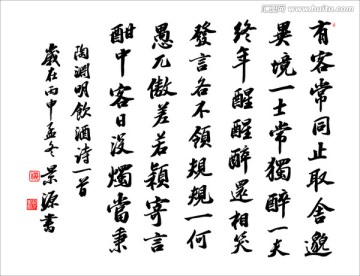 有客常同止取舍邈
異境一士常獨醉一夫
終年醒醒醉還相笑
發言各不領規規一何
愚兀傲差若穎寄言
酣中客日沒燭當秉
陶淵明飲酒詩一首
歲在丙申孟冬景源書
www.huitu.com